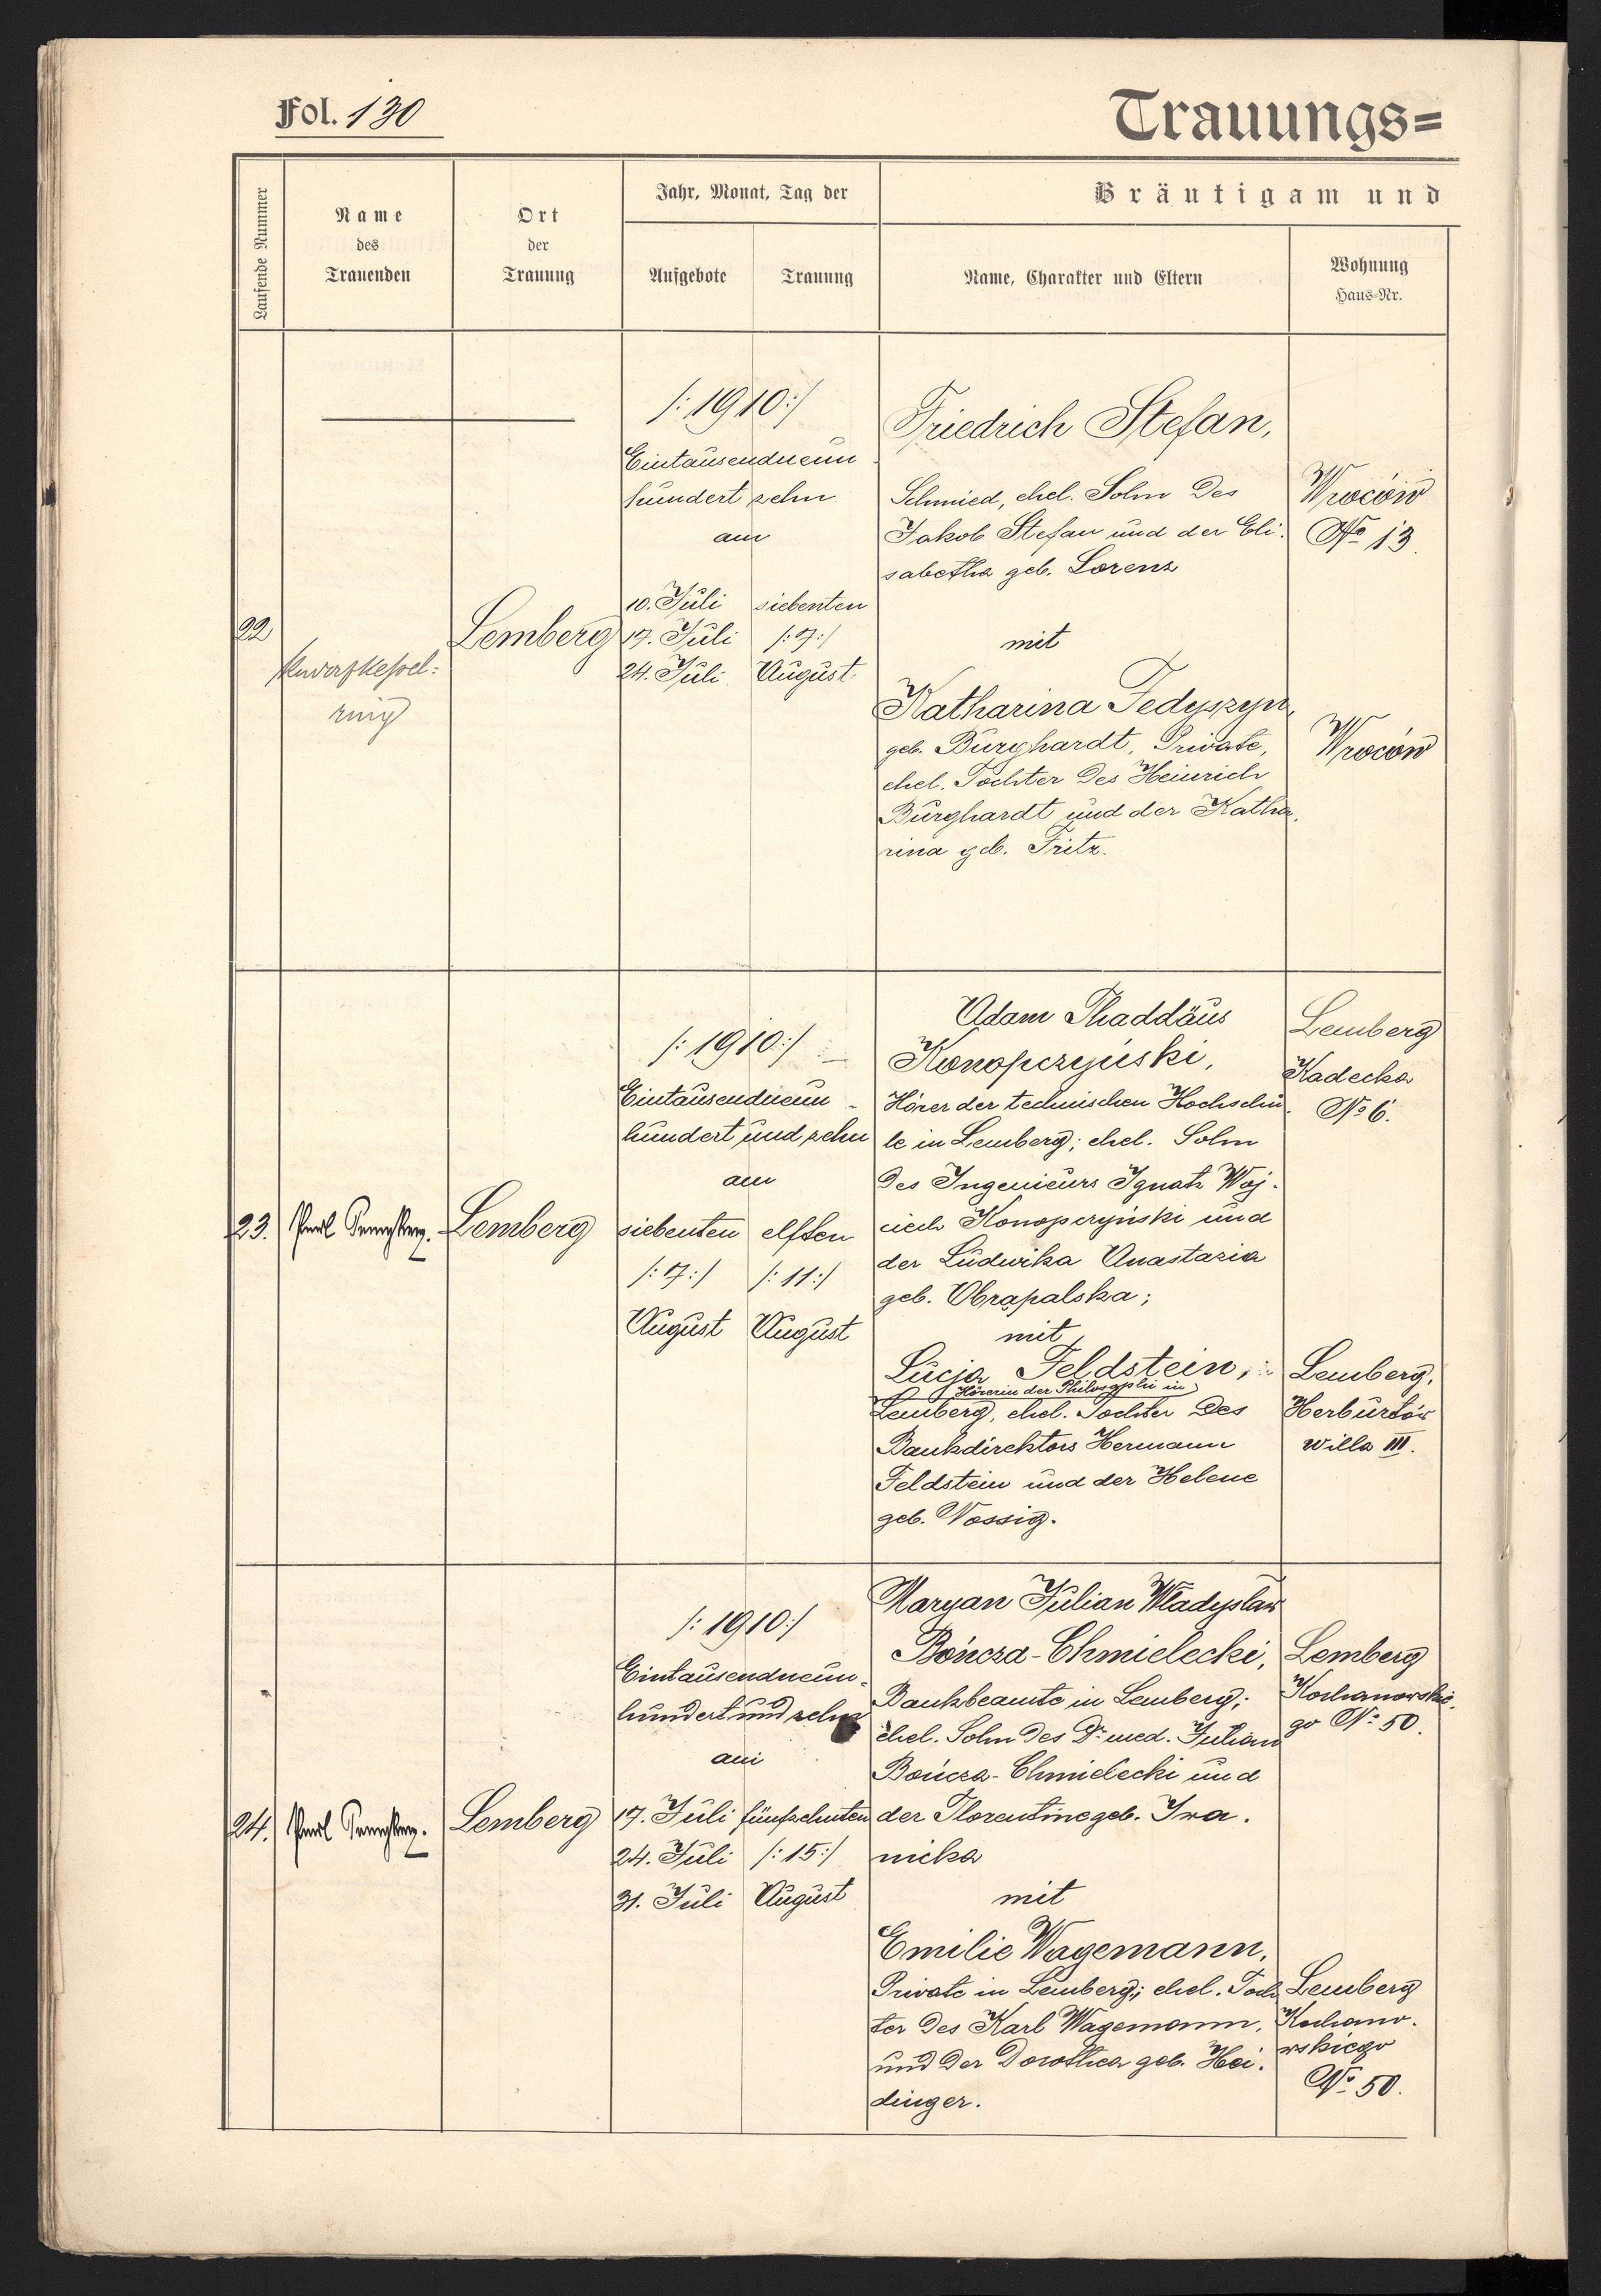 Fol. 130
Trauungs=
Laufende Nummer
Name
des
Trauenden
Ort
der
Trauung
Jahr, Monat, Tag der
Aufgebote
Trauung
Bräutigam und
Name, Charakter und Eltern
Wohnung
Haus=Nr.
22
Lemberg
/: 1910 :/
Eintausendneun
hundert zehn
am
10. Juli
17. Juli
24. Juli
siebenten
/: 7 :/
August
Friedrich Stefan,
Schmied, ehel. Sohn des
Jakob Stefan und der Eli-
sabetha geb. Lorenz
mit
Katharina Fedyszyn,
geb. Burghardt, Private,
ehel. Tochter des Heinrich
Burghardt und der Katha-
rina geb. Fritz.
Wroców
No 13.
Wroców
23.
Lemberg
/: 1910 :/
Eintausendneun-
hundert und zehn
am
siebenten
/: 7 :/
August
elften
/: 11 :/
August
Adam Thaddäus
Konopczyński,
Hörer der technischen Hochschu-
le in Lemberg; ehel. Sohn
des Ingenieurs Ignatz Woj-
ciech Konopczyński und
der Ludwika Anastazia
geb. Obrąpalska;
mit
Lucja Feldstein,
Hörerin der Philosophi in
Lemberg, ehel. Tochter des
Bankdirektors Hermann
Feldstein und der Helene
geb. Nossig.
Lemberg
Kadecka
No 6.
Lemberg,
Herburtów
willa III.
24.
Lemberg
/: 1910 :/
Eintausendneun-
hundert und zehn
am
17. Juli
24. Juli
31. Juli
fünfzehnten
/: 15 :/
August
Maryan Julian Wladyslaw
Bończa-Chmielecki,
Bankbeamte in Lemberg;
ehel. Sohn des Dr med. Julian
Bończa-Chmielecki und
der Florentine geb. Iwa-
nicka
mit
Emilie Wagemann,
Private in Lemberg; ehel. Toch-
ter des Karl Wagemann,
und der Dorothea geb. Hei-
dinger.
Lemberg
Kochanowskie-
go No 50.
Lemberg
Kochano-
wskiego
No 50.